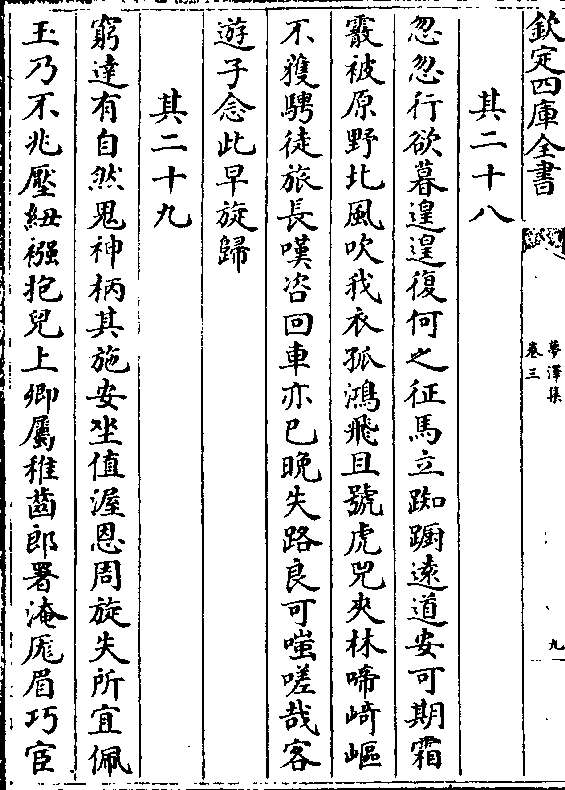 欽定四庫全書
夢澤集
卷三
九
其二十八
忽忽行欲暮遑遑復何之征馬立踟蹰遠道安可期霜
霰被原野北風吹我衣孤鴻飛且號虎兕夾林啼﨑嶇
不獲騁徒旅長嘆咨回車亦已晚失路良可嗤嗟哉客
遊子念此早旋歸
其二十九
窮達有自然鬼神柄其施安坐值渥恩周旋失所宜佩
玉乃不兆壓紐襁抱兒上卿屬稚齒郎署淹厖眉巧宦